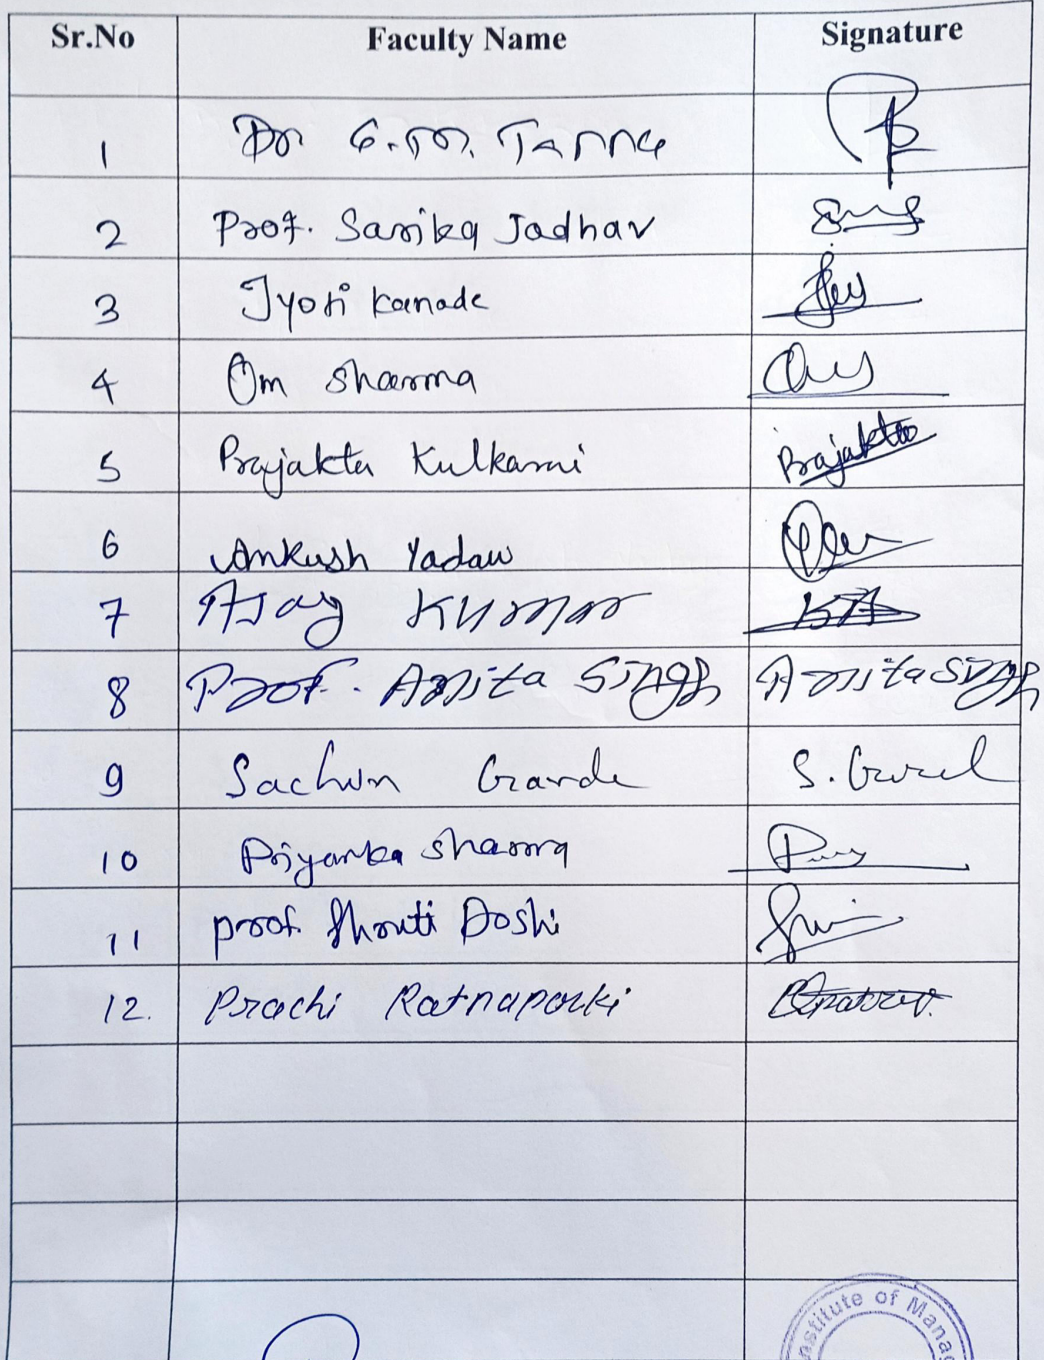 Sr.No Faculty Name Signature
1 Dr G.M.
2 Prof. Sarika Jadhav
3 Jyoti Kanade
4 Om Sharma
5 Prajakta Kulkarni Prajakta
6 Ankush Yadav
7 Ajay Kumar
8 Prof. Anita Singh Anita Singh
9 Sachin S.
10 Priyanka Sharma
11 prof. Shruti Doshi
12. Prachi Ratnaparki
nstitute of Manag